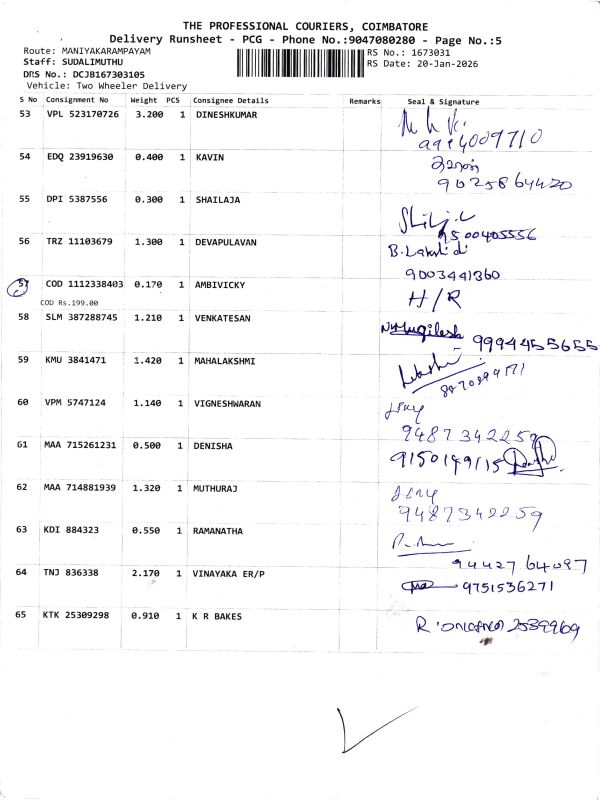 THE PROFESSIONAL COURIERS, COIMBATORE
Delivery Runsheet - PCG - Phone No.:9047080280 - Page No.:5
Route: MANIYAKARAMPAYAM RS No.: 1673031
Staff: SUDALIMUTHU RS Date: 20-Jan-2026
DRS No.: DCJB167303105
Vehicle: Two Wheeler Delivery
S No Consignment No Weight PCS Consignee Details Remarks Seal & Signature
53 VPL 523170726 3.200 1 DINESHKUMAR
54 EDQ 23919630 0.400 1 KAVIN
9025864420
55 DPI 5387556 0.300 1 SHAILAJA
9500405556
56 TRZ 11103679 1.300 1 DEVAPULAVAN
9003441360
57 COD 1112338403 0.170 1 AMBIVICKY H/R
COD Rs.199.00
58 SLM 387288745 1.210 1 VENKATESAN
9994455655
59 KMU 3841471 1.420 1 MAHALAKSHMI
60 VPM 5747124 1.140 1 VIGNESHWARAN
9487342259
61 MAA 715261231 0.500 1 DENISHA
9150149115
62 MAA 714881939 1.320 1 MUTHURAJ
9487342259
63 KDI 884323 0.550 1 RAMANATHA
9442764097
64 TNJ 836338 2.170 1 VINAYAKA ER/P
9751536271
65 KTK 25309298 0.910 1 K R BAKES
2539969